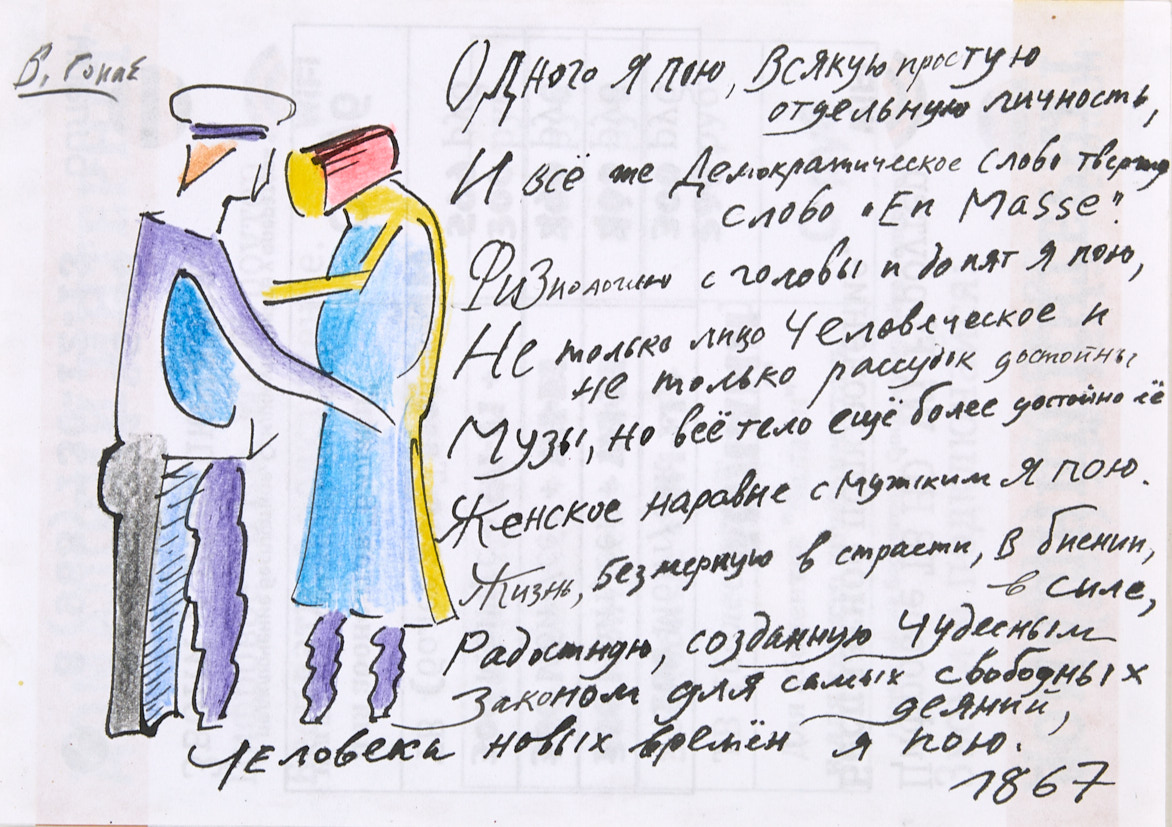 В. Гопак
Одного я пою, всякую простую
отдельную личность,
И всё же Демократическое слово твержу
слово "En Masse".
Физиологию с головы и до пят я пою,
Не только лицо Человеческое и
не только рассудок достойны
Музы, но всё тело ещё более достойно её
Женское наравне с Мужским я пою.
Жизнь, безмерную в страсти, в биении,
в силе,
Радостную, созданную чудесным
Законом для самых свободных
деяний,
Человека новых времён я пою.
1867